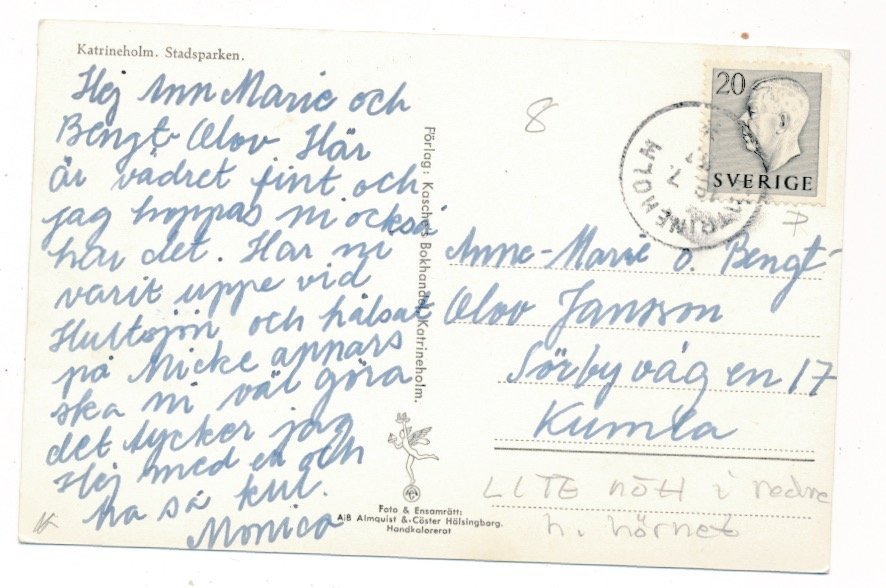 Katrineholm. Stadsparken.
Hej Ann Marie och
Bengt-Olov Här
är vädret fint och
jag hoppas ni också
har det. Har ni
varit uppe vid
Hultsjön och hälsat
på Micke annars
ska ni väl göra
det tycker jag
Hej med er och
ha så kul.
Monica
Förlag: Kaschers Bokhandel, Katrineholm.
Foto & Ensamrätt:
A/B Almquist & Cöster Hälsingborg.
Handkolorerat
8
20
SVERIGE
KATRINEHOLM
Anne-Marie o. Bengt-
Olov Jansson
Sörbyvägen 17
Kumla
LITE nött i nedre
h. hörnet